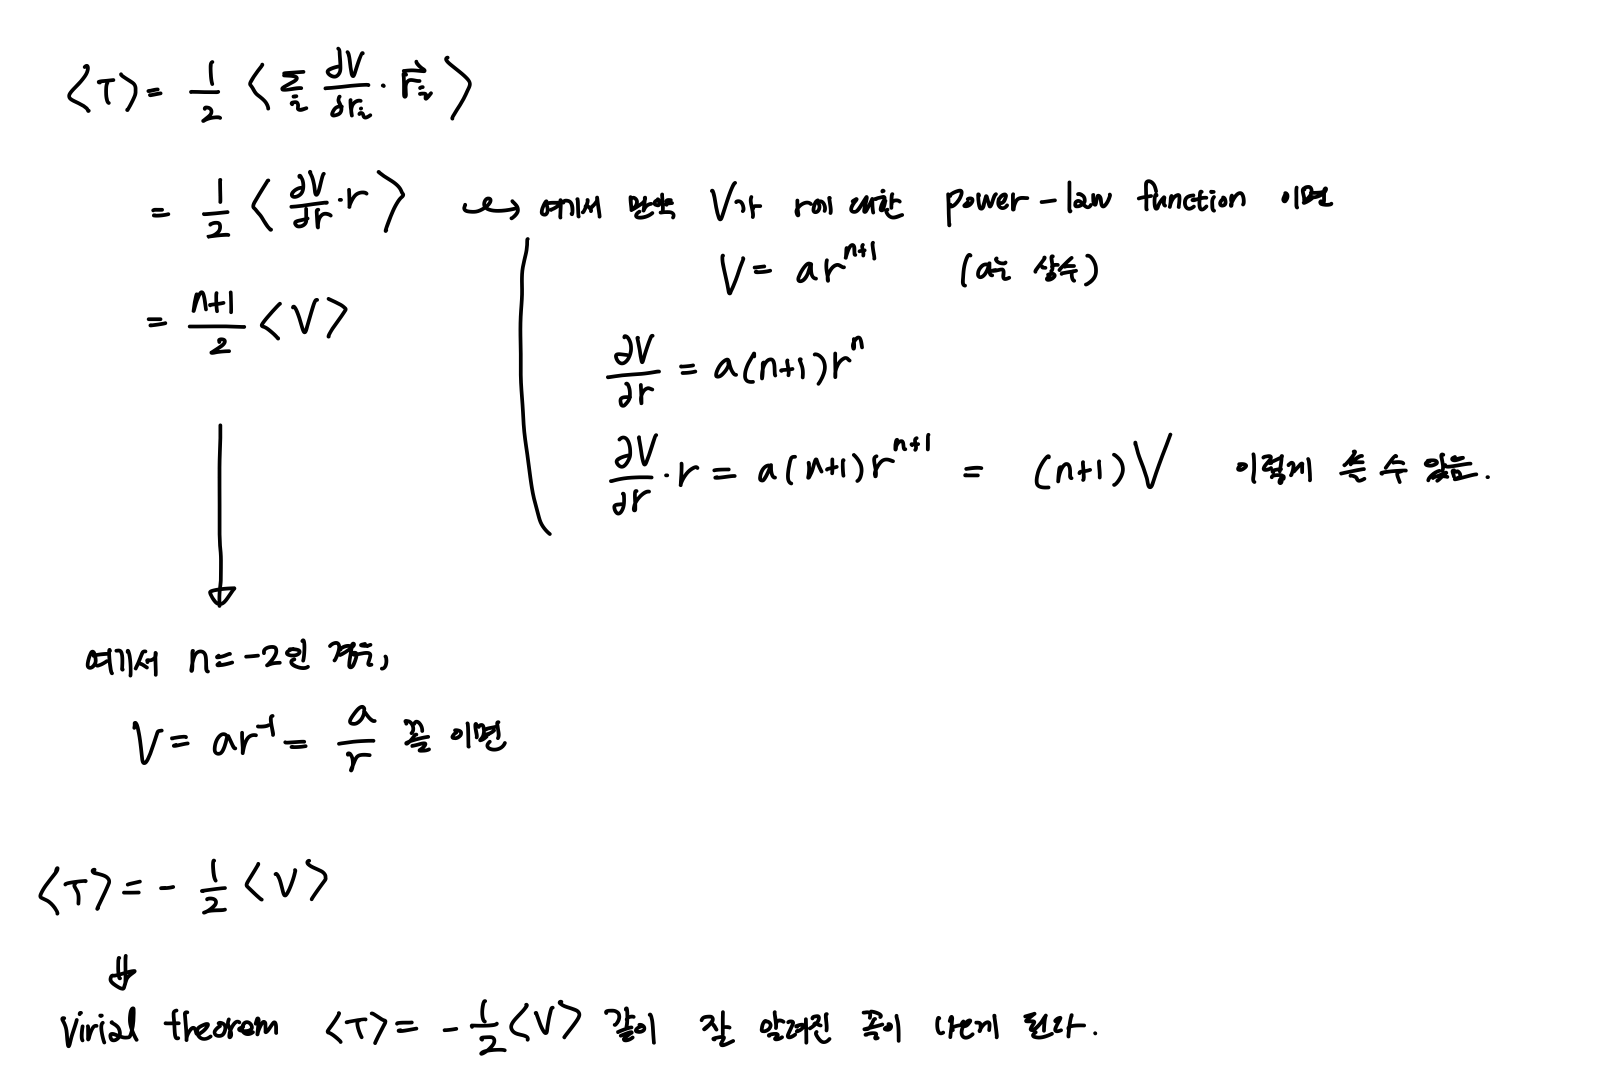 ⟨T⟩ = 1/2 ⟨ Σ_i ∂V/∂r_i · r⃗_i ⟩
= 1/2 ⟨ ∂V/∂r · r ⟩ ↪ 여기서 만약 V가 r에 대한 power-law function 이면
V = ar^{n+1} (a는 상수)
= n+1/2 ⟨V⟩
∂V/∂r = a(n+1)r^n
∂V/∂r · r = a(n+1)r^{n+1} = (n+1)V 이렇게 쓸 수 있음.
여기서 n = -2인 경우,
V = ar^{-1} = a/r 꼴 이면
⟨T⟩ = - 1/2 ⟨V⟩
⇓
Virial theorem ⟨T⟩ = - 1/2 ⟨V⟩ 같이 잘 알려진 꼴이 나오게 된다.